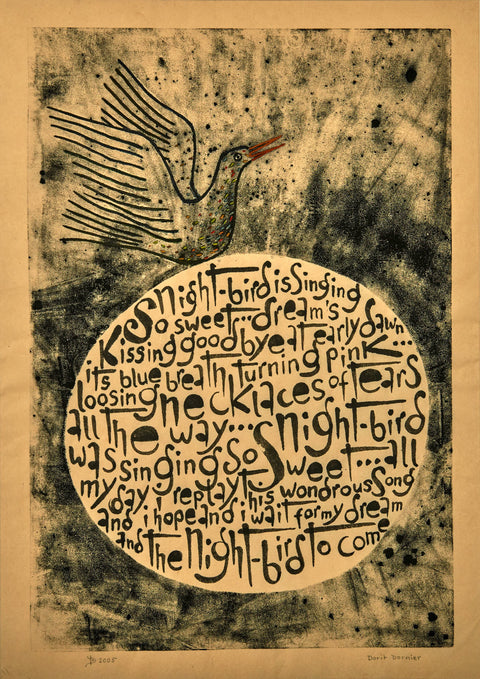 night-bird is singing
So sweet... dream's
Kissing goodbye at early dawn...
its blue breath turning pink...
loosing necklaces of tears
all the way... night-bird
was singing so Sweet.... all
my day i replay this wondrous Song
and i hope and i wait for my dream
and the night-bird to come
2005 Dorit Dornier